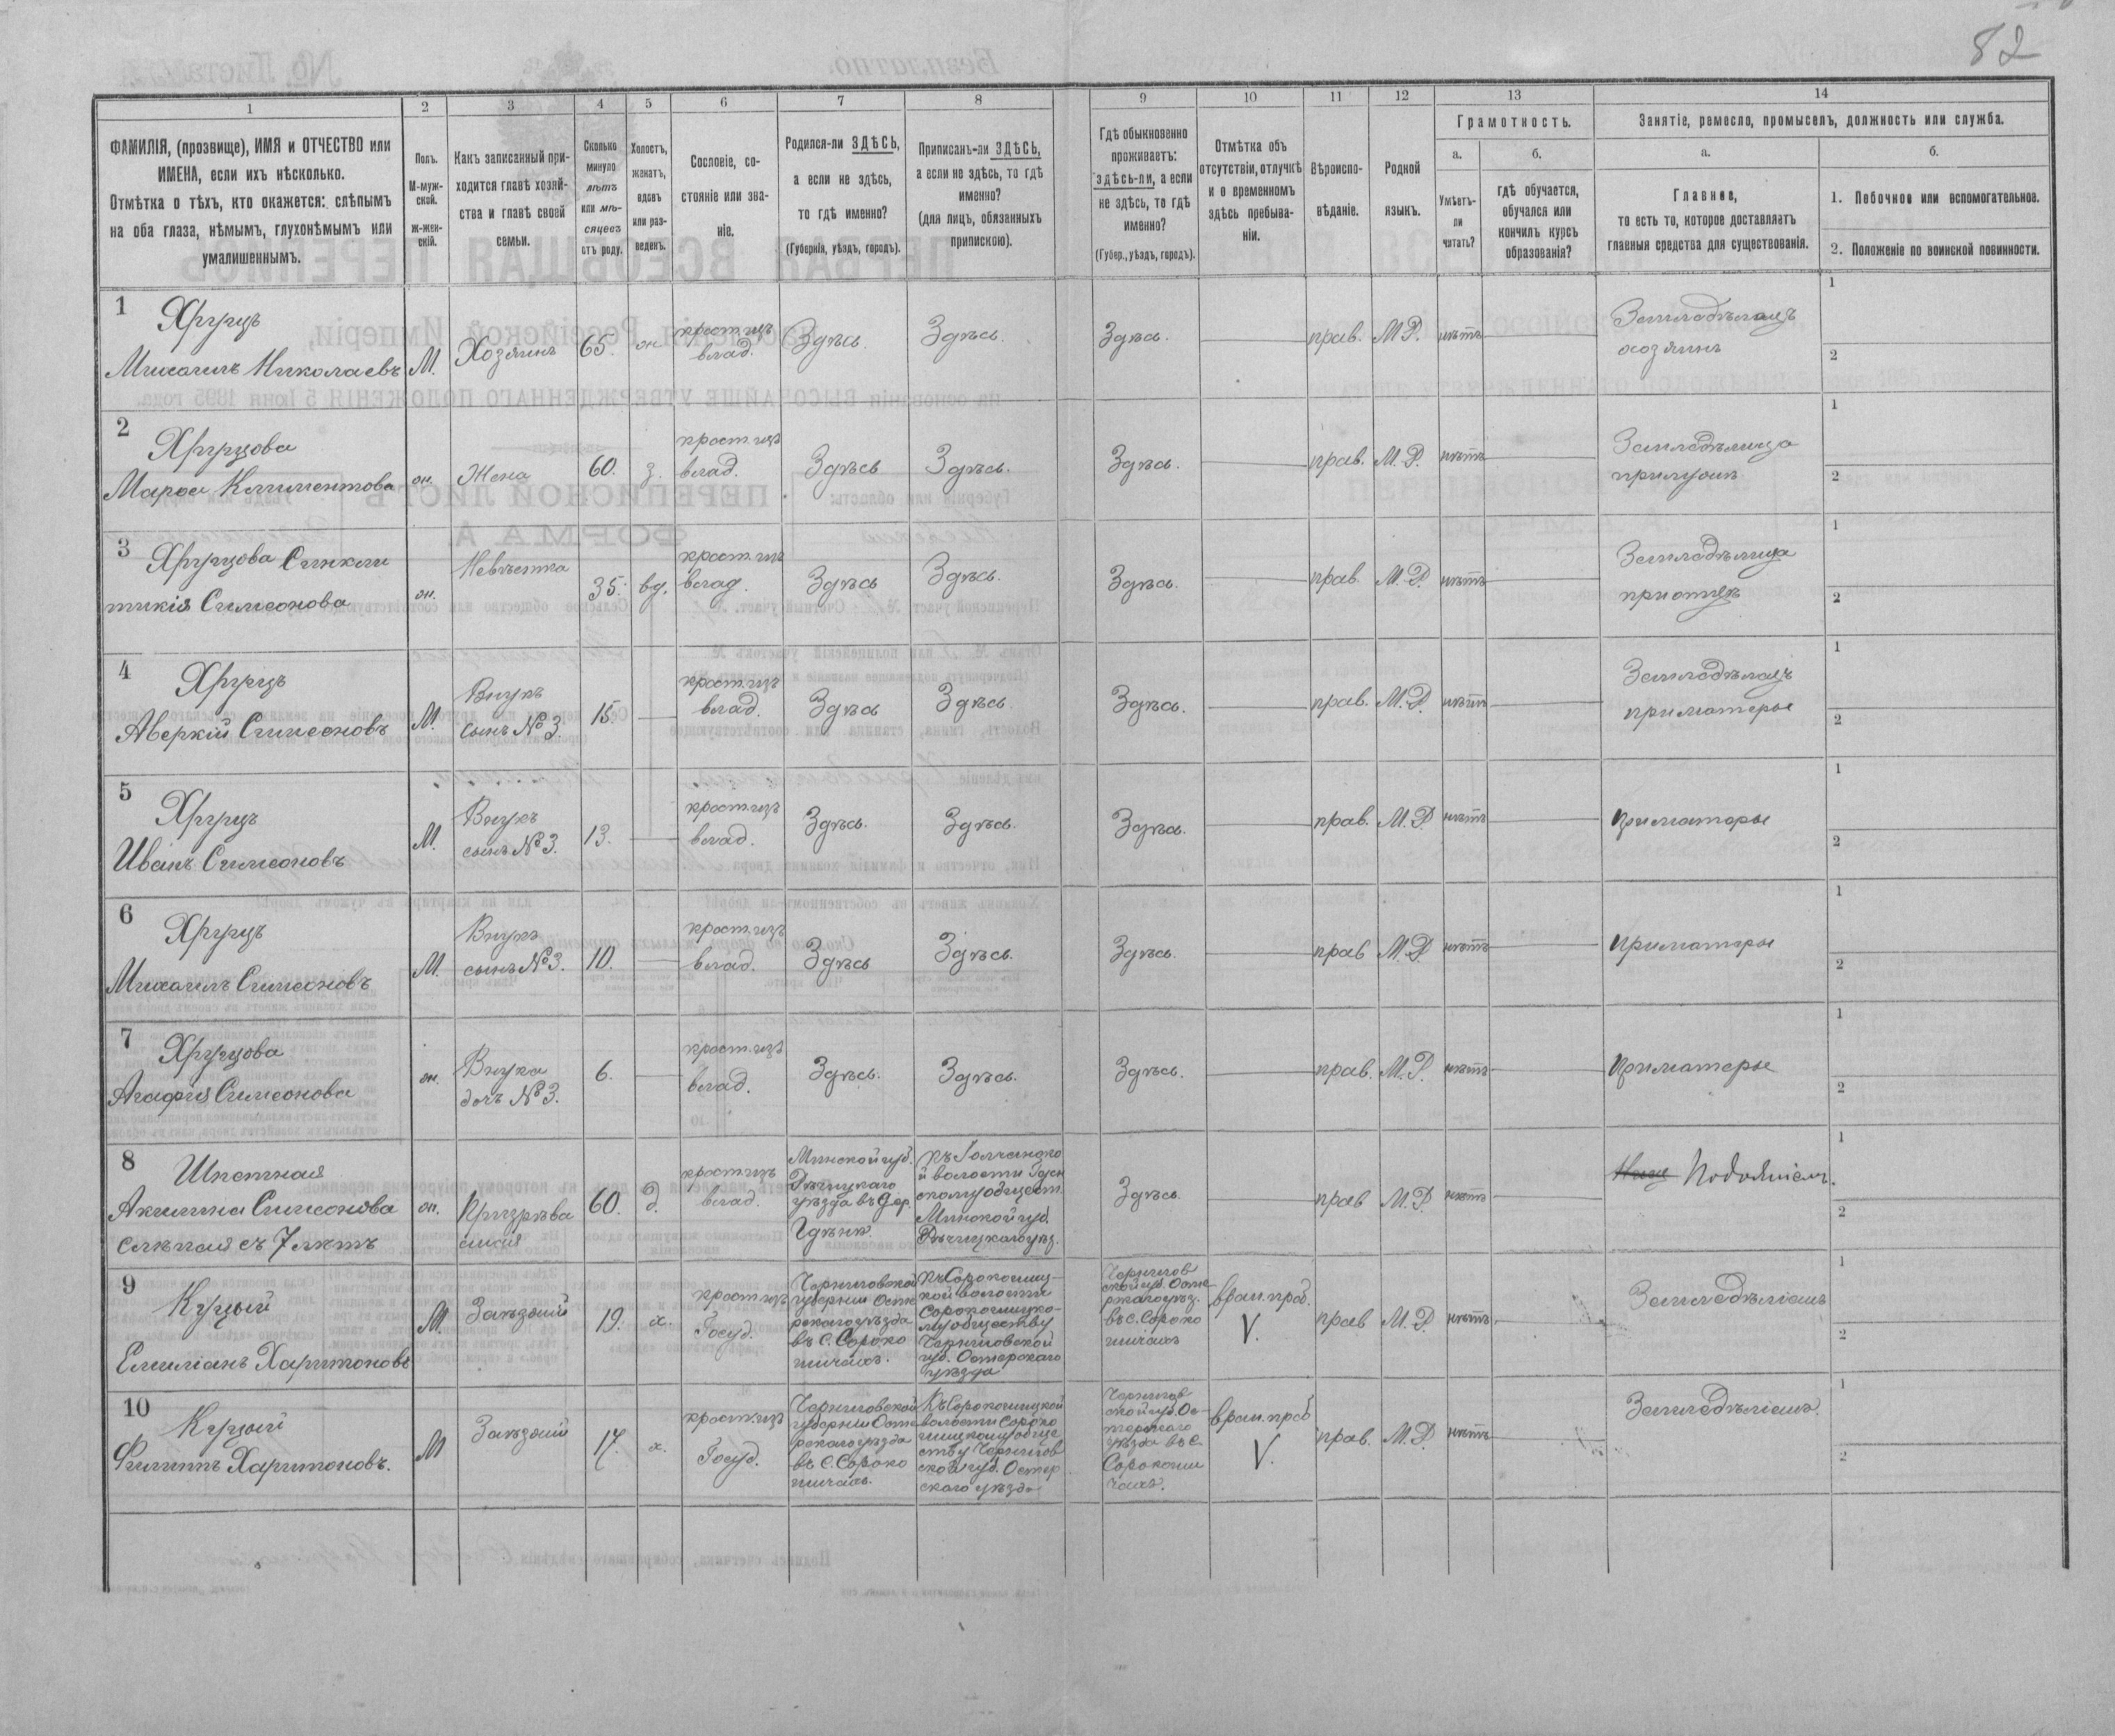 82
1
2
3
4
5
6
7
8
9
10
11
12
13
14
ФАМИЛІЯ, (прозвище), ИМЯ и ОТЧЕСТВО или
ИМЕНА, если ихъ нѣсколько.
Отмѣтка о тѣхъ, кто окажется: слѣпымъ
на оба глаза, нѣмымъ, глухонѣмымъ или
умалишеннымъ.
Полъ.
М-муж-
ской.
Ж-жен-
скій.
Какъ записанный при-
ходится главѣ хозяй-
ства и главѣ своей
семьи.
Сколько
минуло
лѣтъ
или мѣ-
сяцевъ
отъ роду.
Холостъ,
женатъ,
вдовъ
или раз-
веденъ.
Сословіе, со-
стояніе или зва-
ніе.
Родился-ли ЗДѢСЬ,
а если не здѣсь,
то гдѣ именно?
(Губернія, уѣздъ, городъ).
Приписанъ-ли ЗДѢСЬ,
а если не здѣсь, то гдѣ
именно?
(для лицъ, обязанныхъ
припискою).
Гдѣ обыкновенно
проживаетъ:
здѣсь-ли, а если
не здѣсь, то гдѣ
именно?
(Губер., уѣздъ, городъ).
Отмѣтка объ
отсутствіи, отлучкѣ
и о временномъ
здѣсь пребыва-
ніи.
Вѣроиспо-
вѣданіе.
Родной
языкъ.
Грамотность.
а.
Умѣетъ-
ли
читать?
б.
гдѣ обучается,
обучался или
кончилъ курсъ
образованія?
Занятіе, ремесло, промыселъ, должность или служба.
а.
Главное,
то есть то, которое доставляетъ
главныя средства для существованія.
б.
1. Побочное или вспомогательное.
2. Положеніе по воинской повинности.
1
Хрущъ
Михаилъ Николаевъ
М.
Хозяинъ
65.
крест. изъ
влад.
Здѣсь.
Здѣсь.
Здѣсь.
прав.
М.Р.
нѣтъ
Земледѣлецъ
хозяинъ
1
2
2
Хрущова
Климентова
Жена
60.
з.
крест. изъ
влад.
Здѣсь
Здѣсь.
Здѣсь.
прав.
М.Р.
нѣтъ
Земледѣлица
1
2
3
Хрущова Синкли
тикія Симеонова
Невѣстка
35.
вд.
крест. изъ
влад.
Здѣсь
Здѣсь.
Здѣсь.
прав.
М.Р.
нѣтъ
Земледѣлица
1
2
4
Хрущъ
Аверкій Симеоновъ
М.
Внукъ
сынъ №3.
15.
крест. изъ
влад.
Здѣсь
Здѣсь.
Здѣсь.
прав.
М.Р.
нѣтъ
Земледѣлецъ
при матерье
1
2
5
Хрущъ
Иванъ Симеоновъ
М.
Внукъ
сынъ №3.
13.
крест. изъ
влад.
Здѣсь.
Здѣсь.
Здѣсь.
прав.
М.Р.
нѣтъ
при матерье
1
2
6
Хрущъ
Михаилъ Симеоновъ
М.
Внукъ
сынъ №3.
10.
крест. изъ
влад.
Здѣсь
Здѣсь.
Здѣсь.
прав
М.Р.
нѣтъ
при матерье
1
2
7
Хрущова
Агафія Симеонова
Внука
дочь №3.
6.
крест. изъ
влад.
Здѣсь.
Здѣсь.
Здѣсь.
прав.
М.Р.
нѣтъ
При матерье
1
2
8
Акилина Симеонова
слѣпая съ 7 лѣтъ
Призрѣва
емая
60.
д.
крест. изъ
влад.
Минской губ.
Рѣчицкаго
уѣзда въ дер.
волости
обществ.
Минской губ.
Рѣчицкаго уѣз.
Здѣсь
прав
М.Р.
нѣтъ
Подояніемъ.
1
2
9
Куцый
Емиліанъ Харитоновъ
М.
Заѣзжій
19.
х.
крест. изъ
Госуд.
Черниговской
губерніи Осте
рскаго уѣзда
въ С. Сороко
шичахъ.
Къ Сорокошиц-
кой волости
Сорокошицко-
му обществу
Черниговской
губ. Остерскаго
уѣзда
Чернигов
ской губ. Осте
рскаго уѣз.
въ С. Сороко
шичахъ
врем. преб.
V.
прав
М.Р.
нѣтъ
Земледѣліемъ
1
2
10
Куцый
Филиппъ Харитоновъ.
М
Заѣзжій
17.
х.
крест. изъ
Госуд.
Черниговской
губерніи Осте
рскаго уѣзда
въ С. Сороко
шичахъ.
Къ Сорокошицкой
волости Сороко
шицкому обще
ству Чернигов
ской губ. Остер
скаго уѣзда
Чернигов
ской губ. Ос-
терскаго
уѣзда въ С.
Сорокоши
чахъ.
врем. преб
V.
прав.
М.Р.
нѣтъ
Земледѣліемъ.
1
2